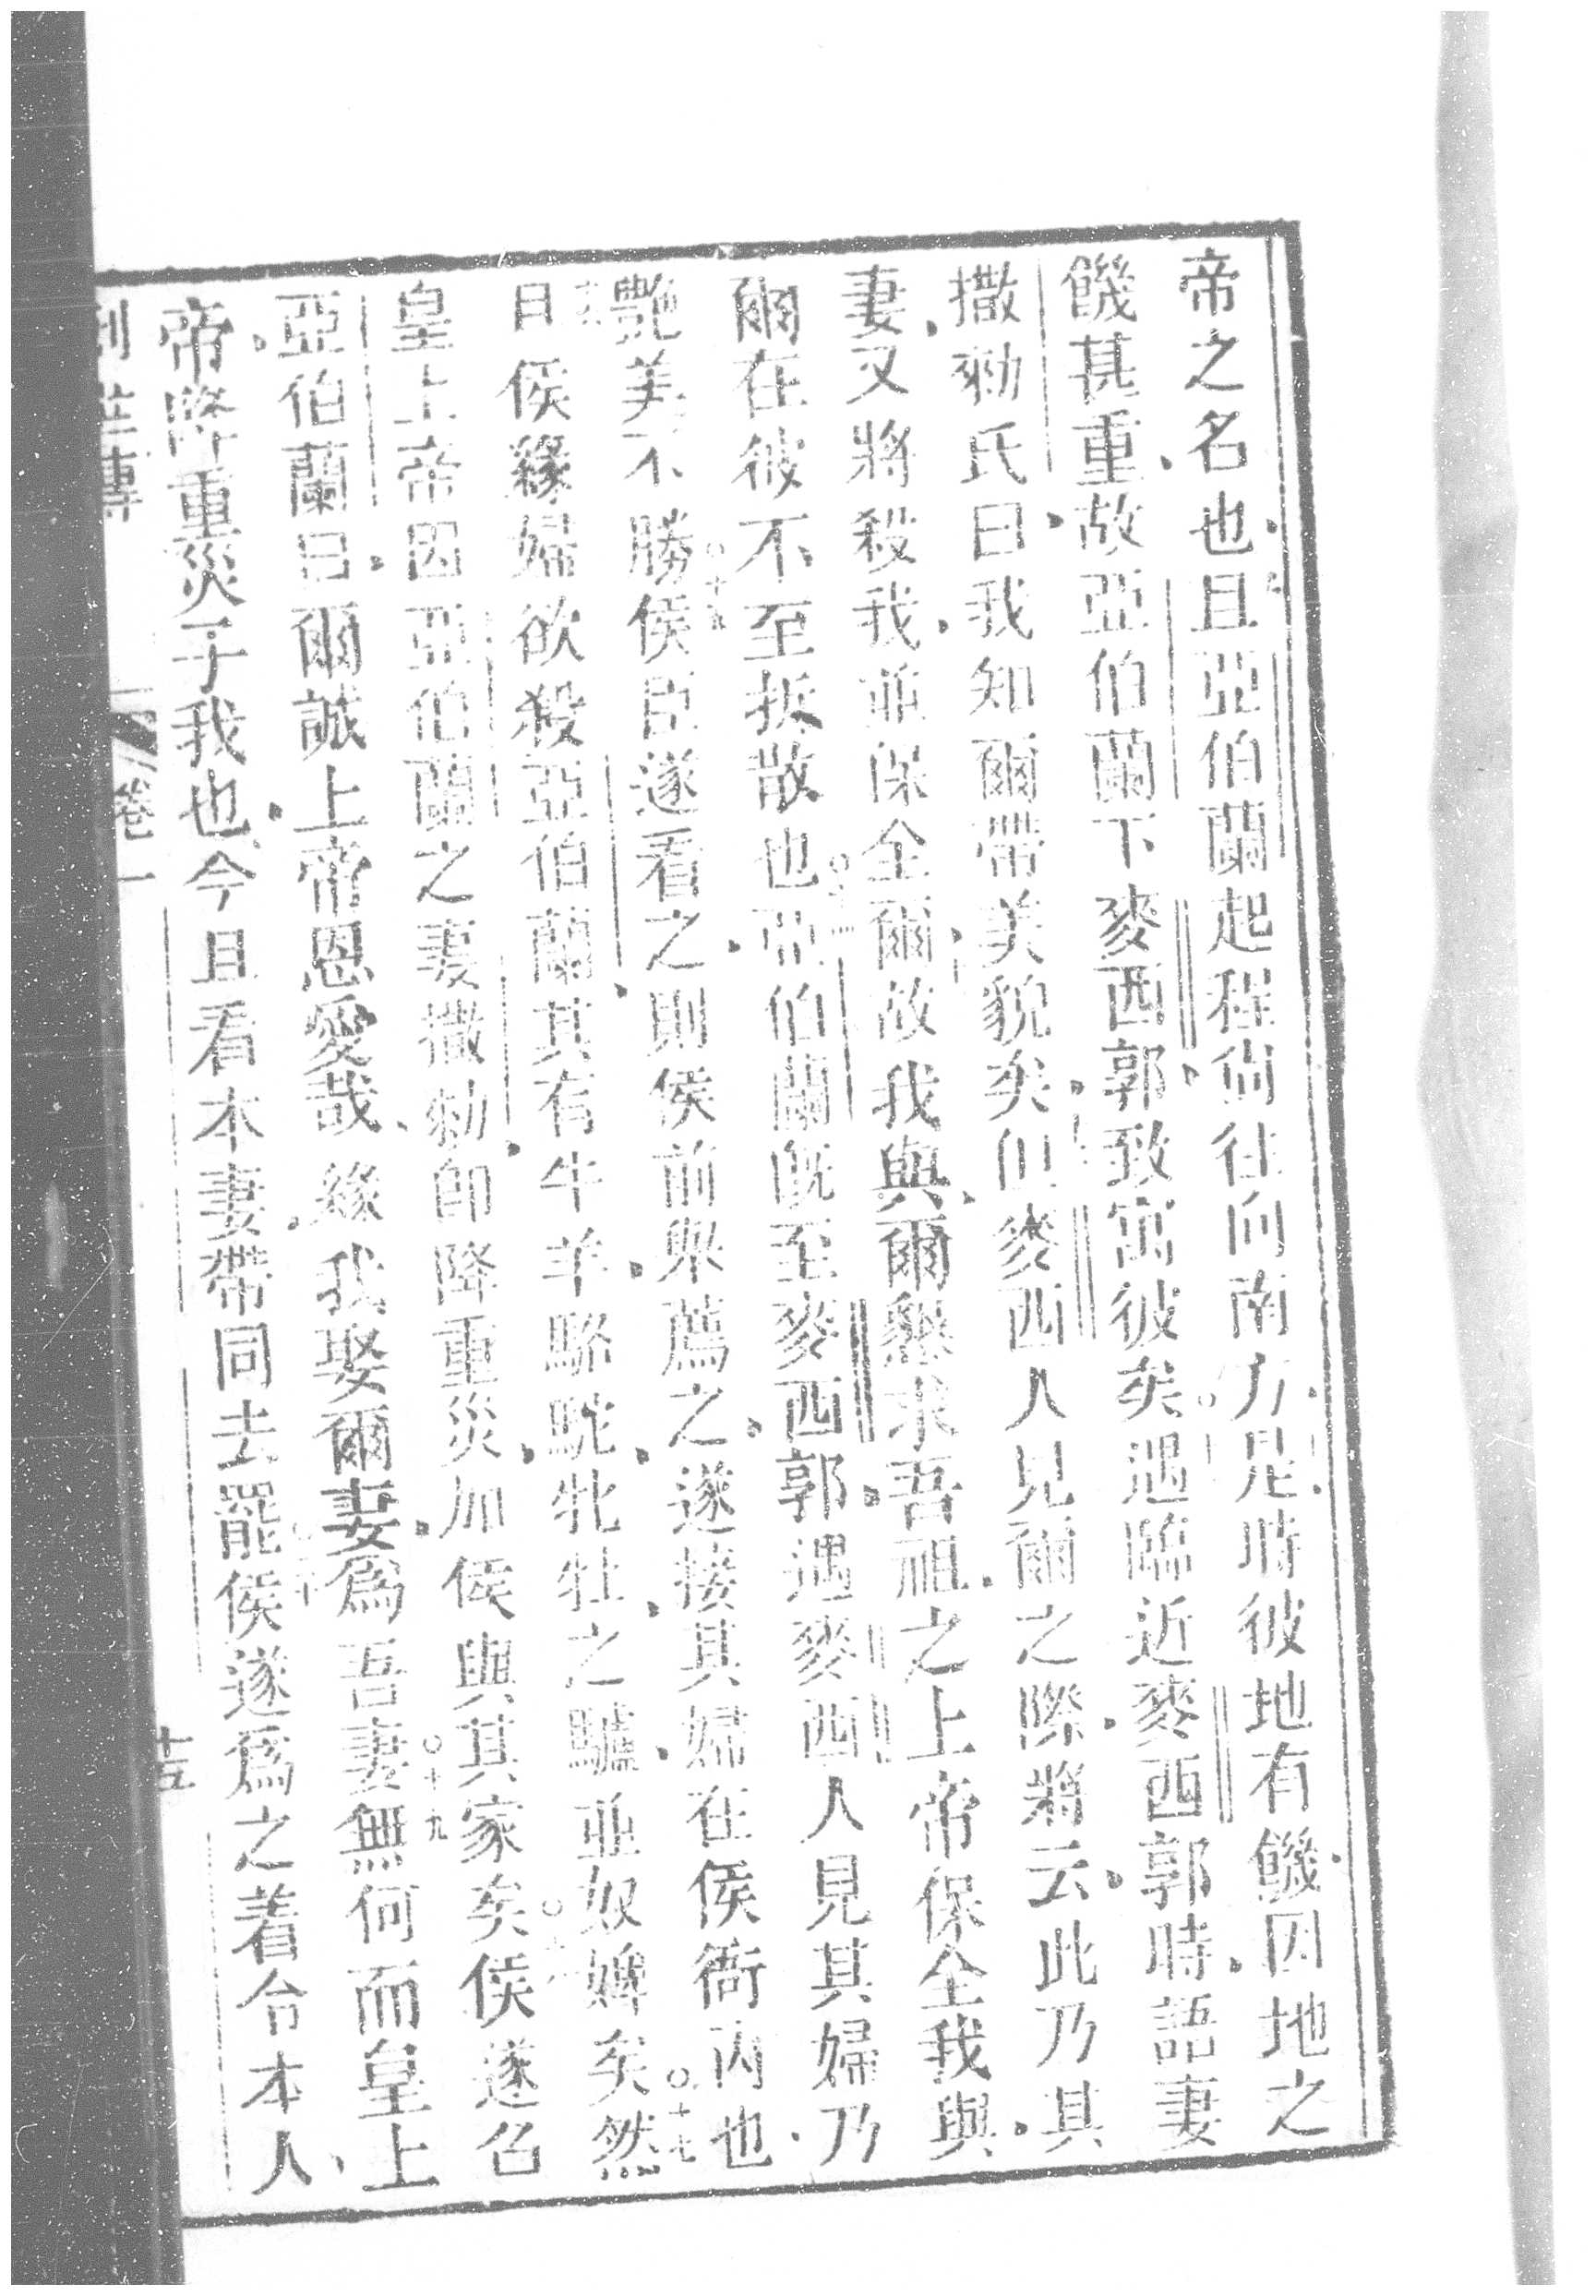 帝之名也且亞伯蘭起程尙往向南方是時彼地有饑因地之
饑甚重故亞伯蘭下麥西郭致寓彼矣遇臨近麥西郭時語妻
撒勑氏曰我知爾帶美貌矣但麥西人見爾之際將云此乃其
妻又將殺我並保全爾故我與爾懇求吾祖之上帝保全我與
爾在彼不至拆散也亞伯蘭旣至麥西郭遇麥西人見其婦乃
艷美不勝侯臣遂看之則侯前舉薦之遂接其婦在侯衙內也
日侯緣婦欲殺亞伯蘭其有牛羊駱駝牝牡之驢並奴婢矣然
皇上帝因亞伯蘭之妻撒勑卽降重災加侯與其家矣侯遂召
亞伯蘭曰爾誠上帝恩愛哉緣我娶爾妻爲吾妻無何而皇上
帝降重災于我也今且看本妻帶同去罷侯遂爲之着令本人
卷一 十五